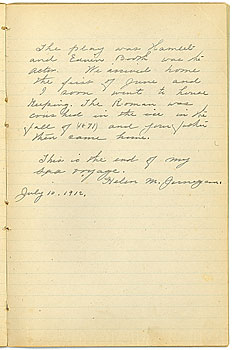 The play was Hamlet
and Edwin Booth was the
actor. We arrived home
the first of June and
I soon went to house
keeping. The Roman was
crushed in the ice in the
fall of 1871 and your father
then came home.
This is the end of my
sea voyage.
Helen M. Jernegan.
July 10. 1912.